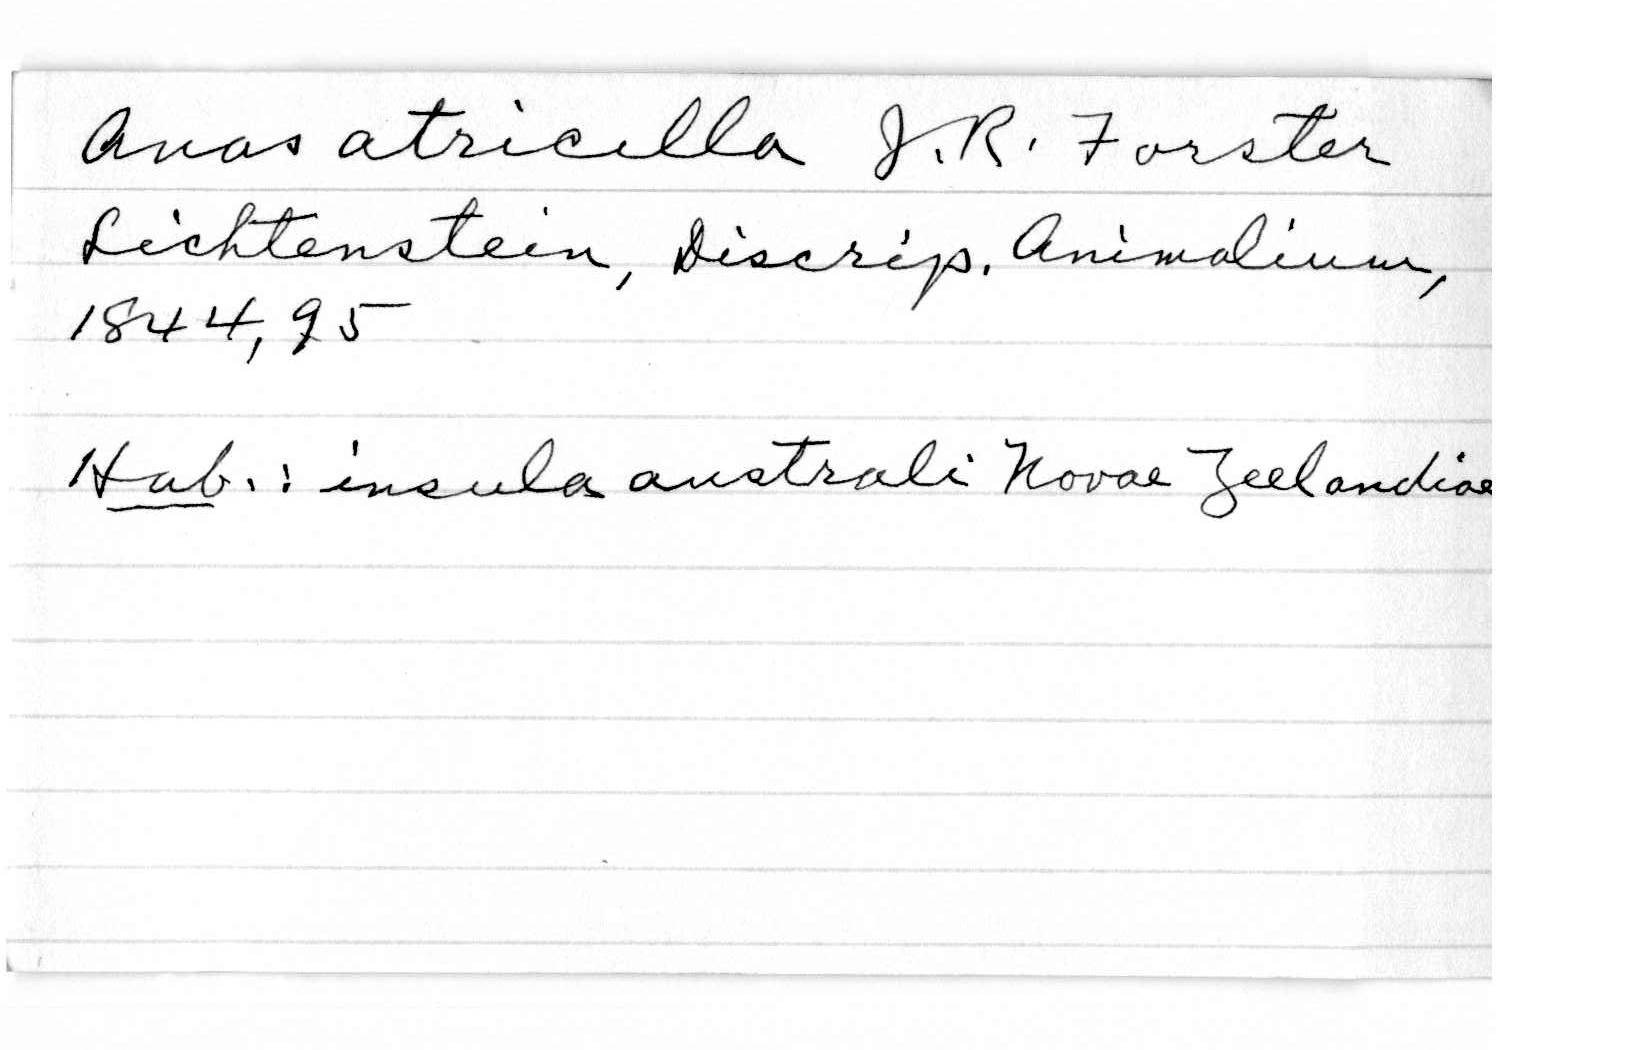 Anas atricilla J. R. Forster
Lichtenstein, Discrip. Animalium,
1844, 95
Hab.: insula australi Novae Zeelandiae